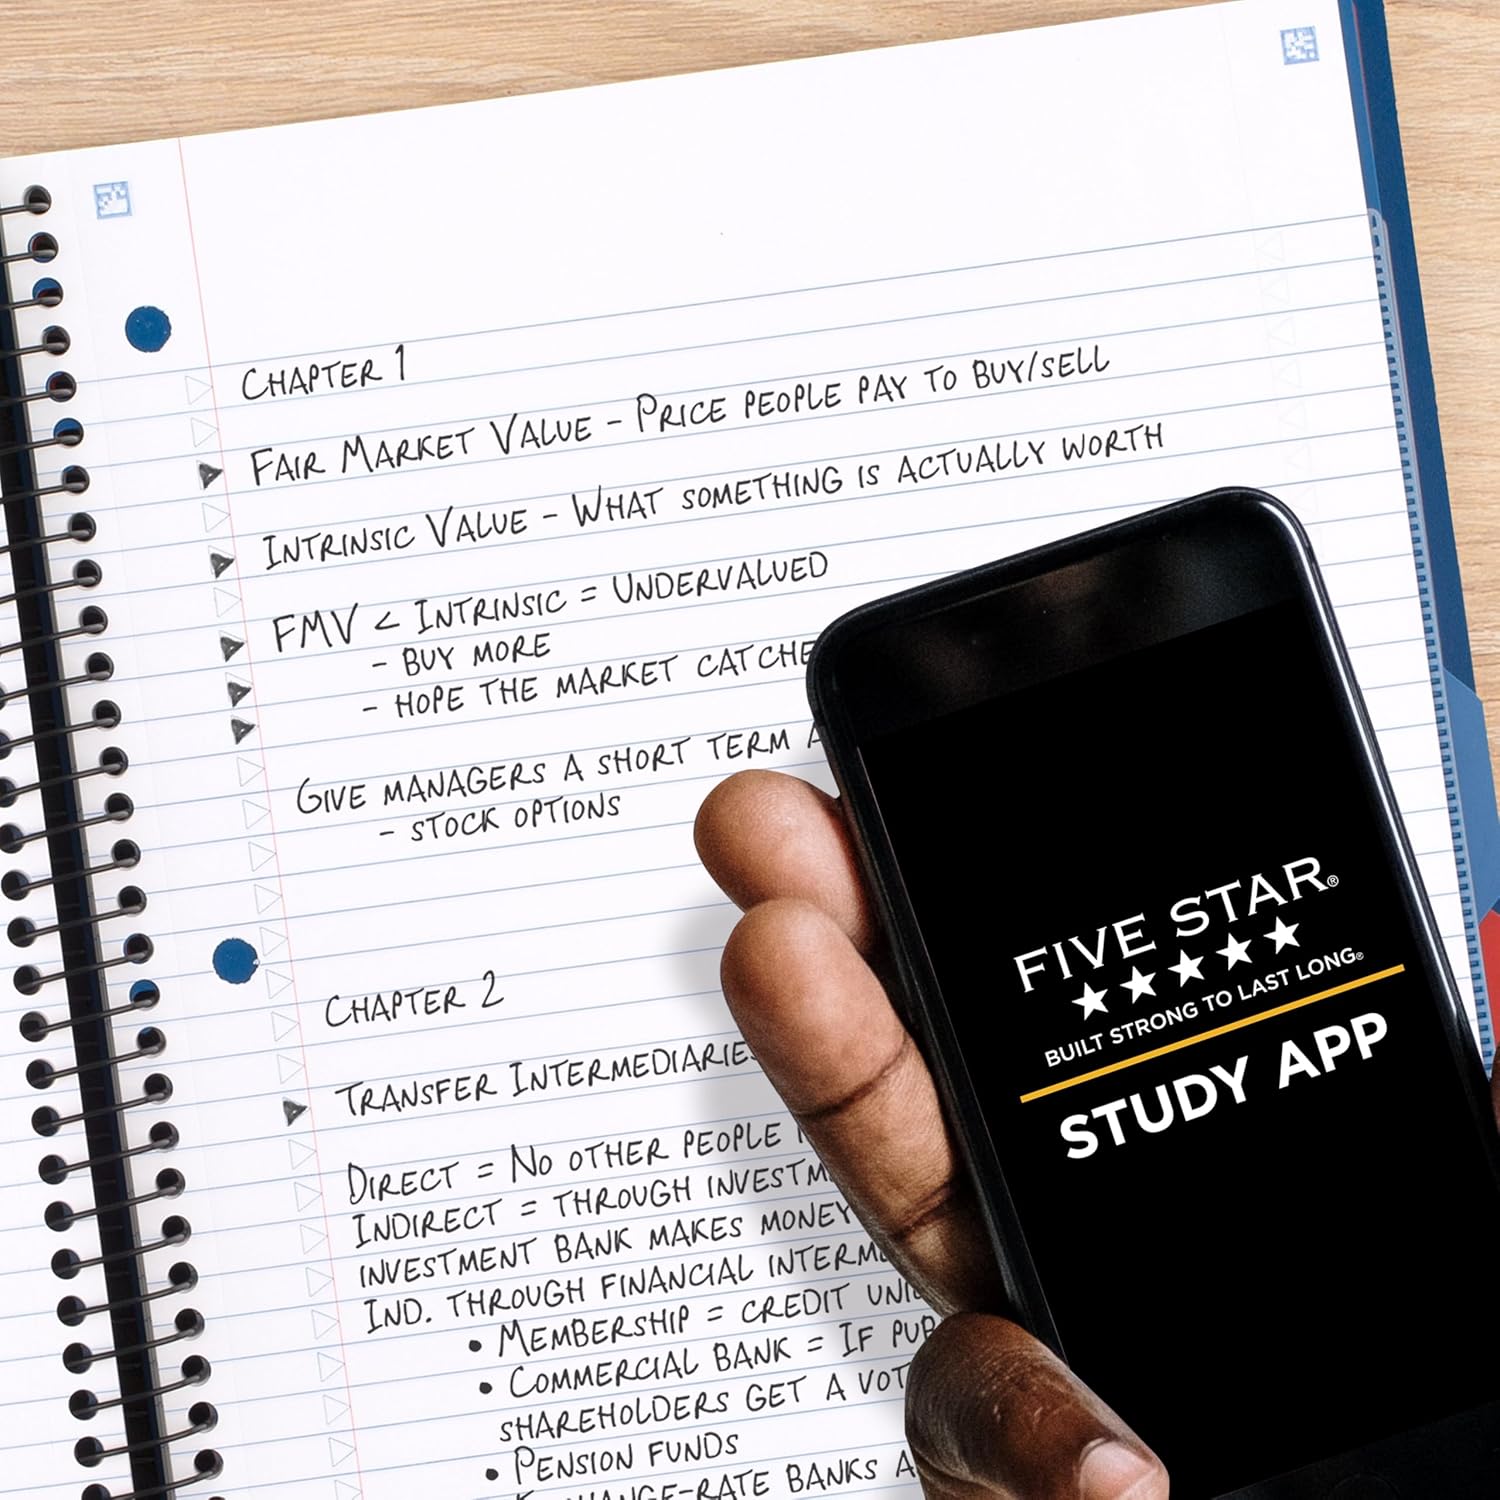 CHAPTER 1
FAIR MARKET VALUE - PRICE PEOPLE PAY TO BUY/SELL
INTRINSIC VALUE - WHAT SOMETHING IS ACTUALLY WORTH
FMV < INTRINSIC = UNDERVALUED
- BUY MORE
- HOPE THE MARKET CATCHE
GIVE MANAGERS A SHORT TERM A
- STOCK OPTIONS
CHAPTER 2
TRANSFER INTERMEDIARIES
DIRECT = NO OTHER PEOPLE
INDIRECT = THROUGH INVESTM
INVESTMENT BANK MAKES MONEY
IND. THROUGH FINANCIAL INTERM
• MEMBERSHIP = CREDIT UNI
• COMMERCIAL BANK = IF PUB
SHAREHOLDERS GET A VOT
• PENSION FUNDS
BANKS A
FIVE STAR®
★★★★★
BUILT STRONG TO LAST LONG®
STUDY APP